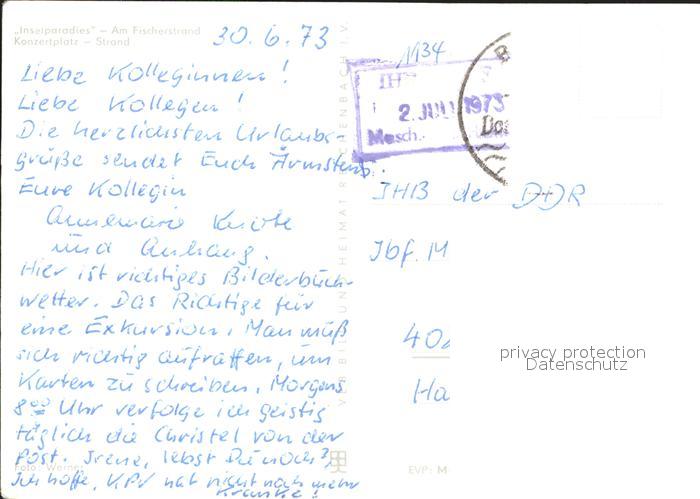 „Inselparadies" — Am Fischerstrand
Konzertplatz — Strand
30.6.73
Liebe Kolleginnen!
Liebe Kollegen!
Die herzlichsten Urlaubs-
grüße sendet Euch Ärmsten
Eure Kollegin
Annemarie
und Anhang.
Hier ist richtiges Bilderbuch-
wetter. Das Richtige für
eine Exkursion. Man muß
sich richtig aufraffen, um
Karten zu schreiben. Morgens
8⁰⁰ Uhr verfolge ich geistig
täglich die Christel von der
Post. Irene, lebst Du noch?
Ich hoffe, KPV hat nicht noch mehr
Kranke!
Foto: Werner
VERLAG BILD UND HEIMAT REICHENBACH I.V.
M34
2. JULI 1973
Masch.
IHB der DDR
Ibf. M
40
Ha
EVP: M
privacy protection
Datenschutz